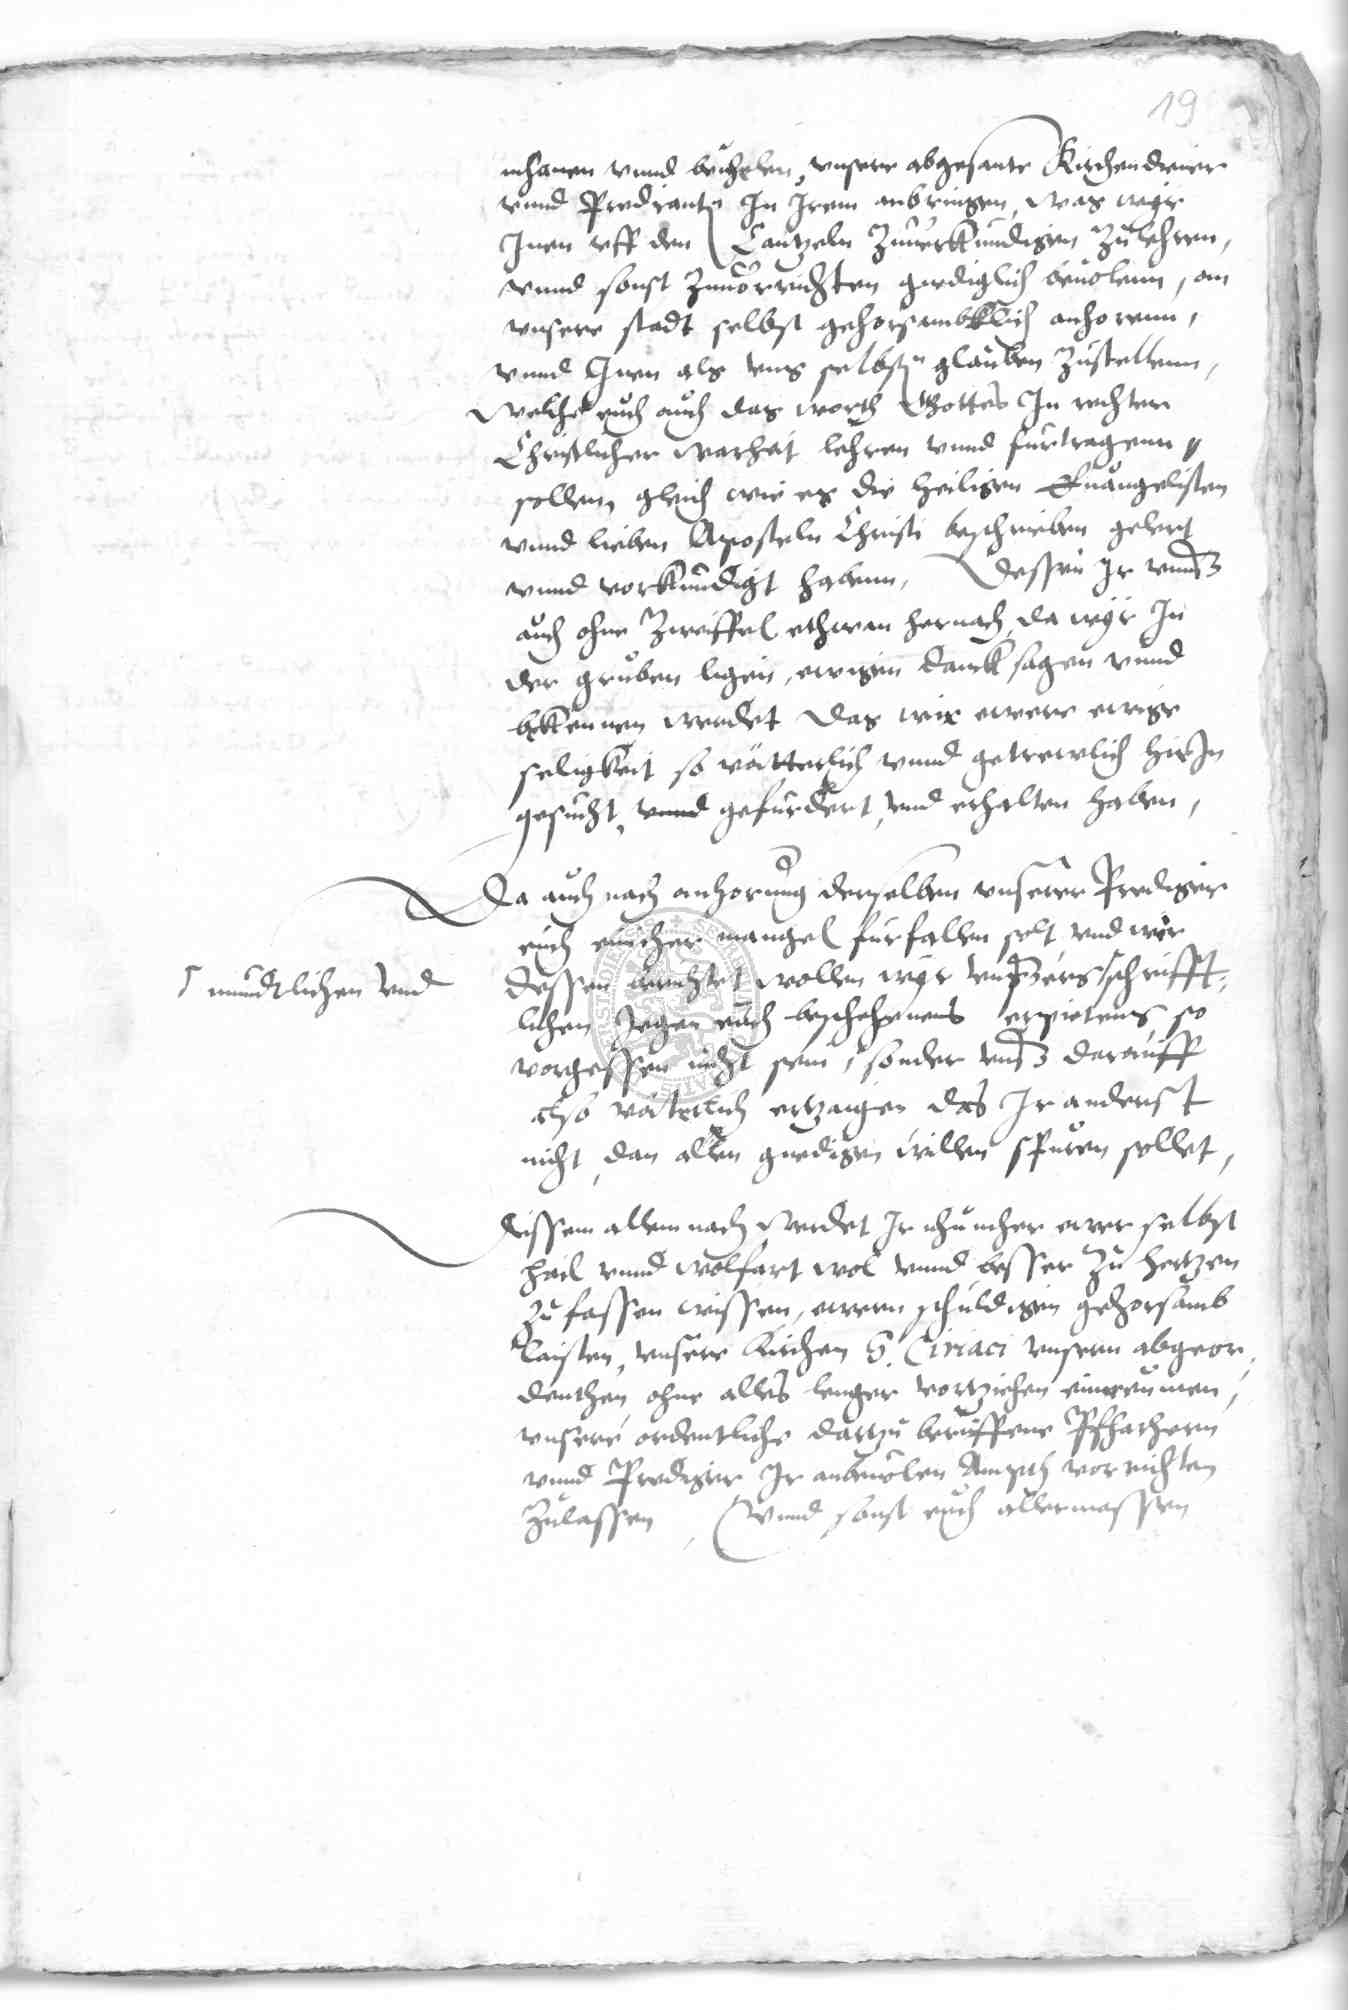 19
vnsere abgesante Kirchendiener
vnnd Predicant In Irem anbringen, was wyr
Inen vff den Cantzeln Zuuerkundigen Zulehren,
vnnd sonst Zuuorrichten gnediglich beuolenn, an
vnsere stadt selbst gehorsambklich anhorenn,
vnnd Inen als vns selbst glauben Zustellenn,
Welche euch auch das worth Gottes In rechter
Christlicher warheit lehren vnnd furtragenn
sollen, gleich wie es die heiligen Euangelisten
vnnd lieben Aposteln Christi beschrieben gelert
vnnd vorkundigt habenn, Dessen Ir vnns
auch ohne Zweiffel ethwan hernach, da wyr In
der gruben ligen, ewigen danck sagen vnnd
bekennen werdet Das wir ewere ewige
seligkeit so vätterlich vnnd getrewlich hirIn
gesucht, vnnd gefurdert, vnd erhalten haben,
Da auch nach anhorung derselben vnserer Prediger
euch einicher mangel furfallen solt vnd wir
mundtlichen vnd
dessen berichtet wollen wyr vnsers schrifft-
lichen Jegen euch beschehenens erpietens, so
vorgessen nicht sein, sonder vnns darauff
also väterlich ertzaigen das Ir anderst
nicht, dan allen gnedigen willen spuren sollet,
Dissem allem nach werdet Ir ewer selbst
hail vnnd wolfart wol vnnd besser Zu hertzen
Zu fassen wissen, ewern schuldigen gehorsamb
laisten, vnsere Kirchen S. Ciriaci vnsern abgeor
denthen ohne alles lenger vortziehen einreumen,
vnsere ordentliche dartzu beruffene Pfharhern
vnnd Prediger Ir anbeuolen Ampth vorrichten
Zulassen, Vnnd sonst euch allermassen